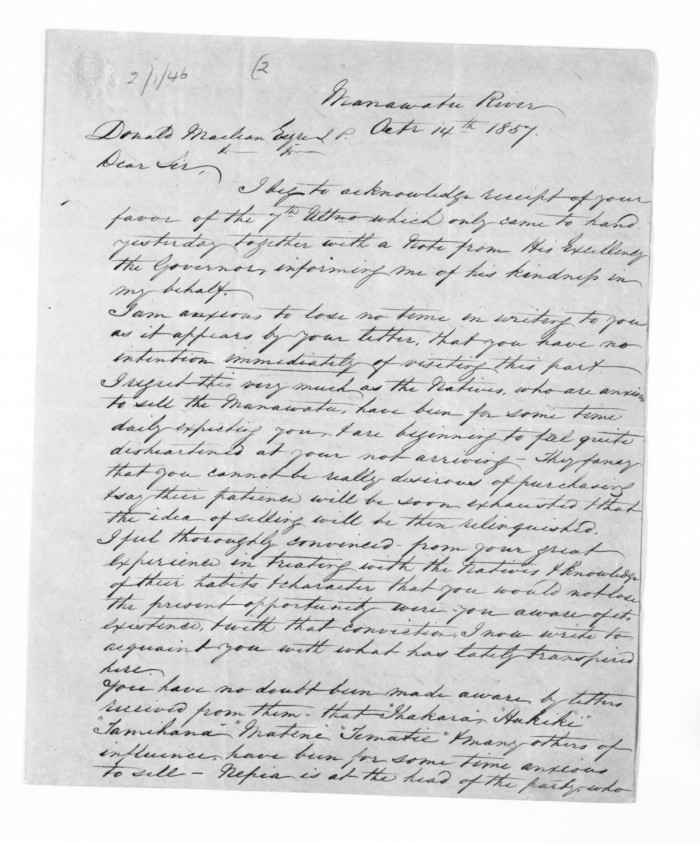 2/1/46 (2
Manawatu River
Donald Maclean Esqre J. P. Octr 14th 1857.
Dear Sir,
I beg to acknowledge receipt of your
favor of the 7th Ultmo which only came to hand
yesterday together with a Note from His Excellency
the Governor, informing me of his kindness in
my behalf.
I am anxious to lose no time in writing to you
as it appears by your letter, that you have no
intention immediately of visiting this part
I regret this very much as the Natives, who are anxious
to sell the Manawatu, have been for some time
daily expecting you, & are beginning to feel quite
disheartened at your not arriving - They fancy
that you cannot be really desirous of purchasing
& say their patience will be soon exhausted & that
the idea of selling will be then relinquished.
I feel thoroughly convinced from your great
experience in treating with the Natives & knowledge
of their habits & character that you would not lose
the present opportunity were you aware of its
existence, & with that conviction, I now write to
acquaint you with what has lately transpired
here.
You have no doubt been made aware by letters
received from them - that "Ihakara", "Hukiki"
"Tamihana" "Matene" "Tematie" & many others of
influence, have been for some time anxious
to sell - Nepia is at the head of the party, who